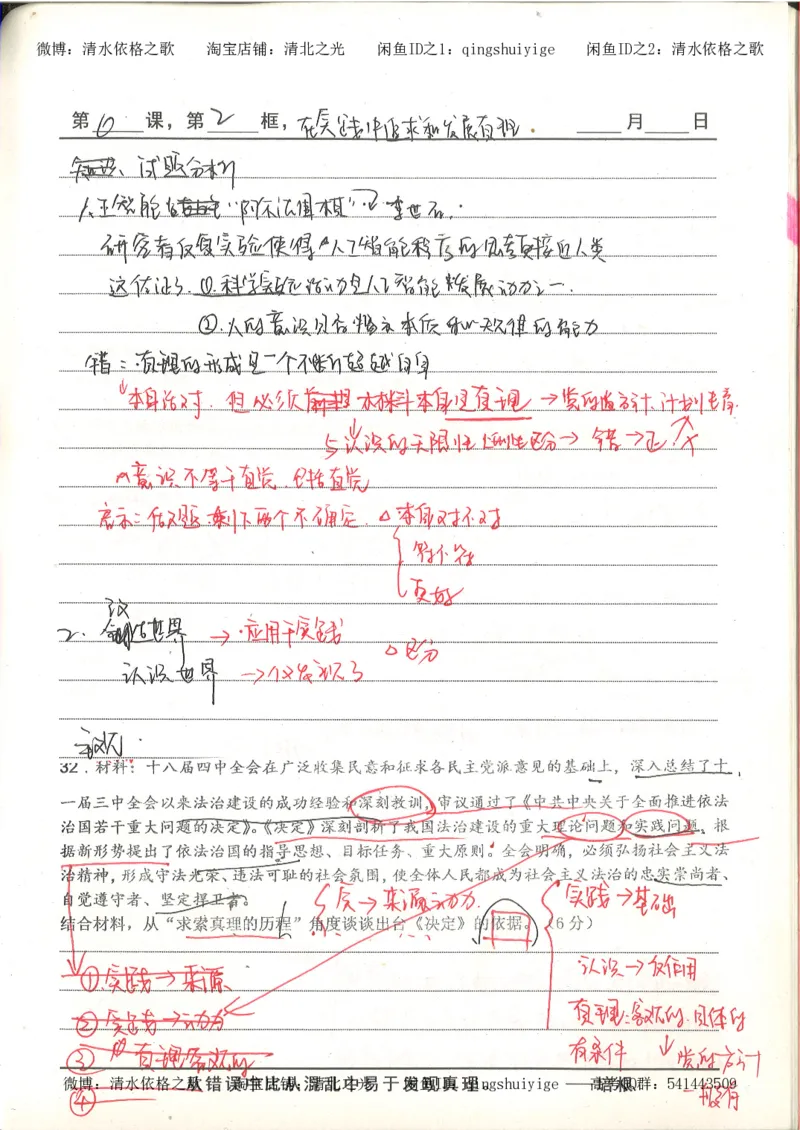 微博：清水依格之歌 淘宝店铺：清北之光 闲鱼ID之1：qingshuiyige 闲鱼ID之2：清水依格之歌
第6课，第2框，在实践中追求和发展真理 月 日
试题分析
人工智能 "阿尔法围棋" 李世石.
研究者反复实验使得 人工智能程序的思考更接近人类
这佐证了 ①.科学实验活动是人工智能发展动力之一.
②.人的意识可否揭示本质和规律的能力
错：真理的形成是一个不断超越自身
本身话对，但必须 材料本身是真理
与认识的无限性 区分→ 错→
意识不等于直觉，包括直觉
启示：做双题：剩下两个不确定 △ 本身对不对
符不符
更好
2. 改造世界 → 应用于实践
△区分
认识世界 → 仅发现了
主观
32．材料：十八届四中全会在广泛收集民意和征求各民主党派意见的基础上，深入总结了十
一届三中全会以来法治建设的成功经验和深刻教训，审议通过了《中共中央关于全面推进依法
治国若干重大问题的决定》。《决定》深刻剖析了我国法治建设的重大理论问题和实践问题，根
据新形势提出了依法治国的指导思想、目标任务、重大原则。全会明确，必须弘扬社会主义法
治精神，形成守法光荣、违法可耻的社会氛围，使全体人民都成为社会主义法治的忠实崇尚者、
自觉遵守者、坚定捍卫者。
结合材料，从"求索真理的历程"角度谈谈出台《决定》的依据。（6分）
实→来源动力
实践→基础
①实践→来源
认识→反作用
②实践→动力
真理：客观的.具体的
③ 真理客观的
有条件
④
从错误中比从混乱中易于发现真理. ——培根
微博：清水依格之歌 qingshuiyige 高考QQ群：541443509